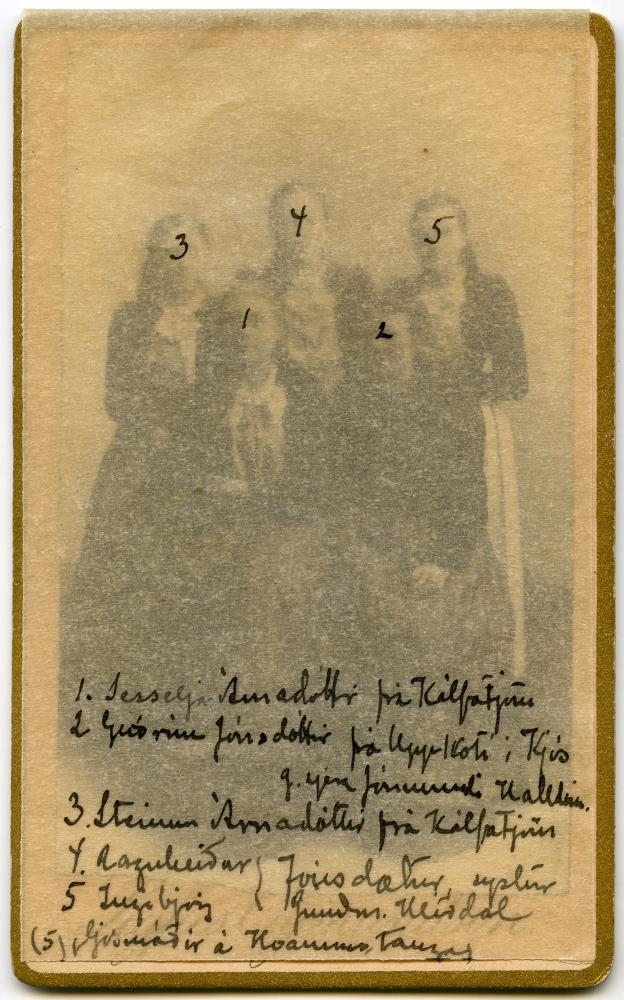 3
4
5
1
2
1. Sesselja Árnadóttir frá Kálfatjörn
2 Guðrún Jónsdóttir frá Uppkoti i Kjós
g. sjera
3. Steinunn Árnadóttir frá Kálfatjörn
4. Ragnheiður } Jónsdætur, systur
5 Ingibjörg } Guðm. Mísdal
(5) ljósmóðir á Hvammstanga